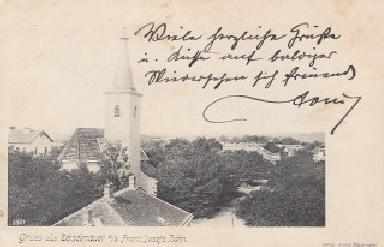 Viele herzliche Grüße
u. Küsse auf baldiger
Wiedersehen sich freuend
Toni
Gruss aus Zeiselmauer a/d Franz Josefs Bahn.